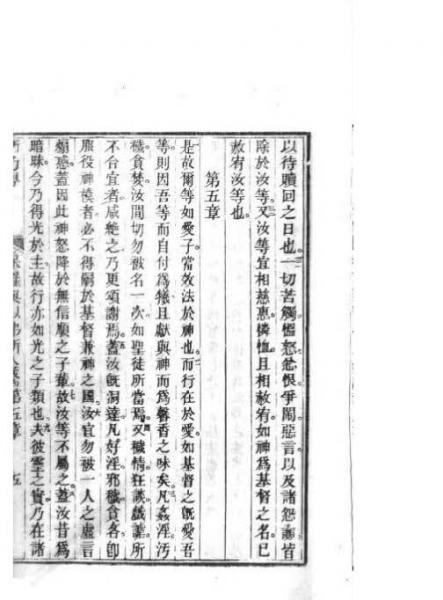 以待贖回之日也一切苦觸慍怒忿恨爭鬧惡言以及諸怨讟皆
除於汝等又汝等宜相慈惠憐恤且相赦宥如神為基督之名已
赦宥汝等也
第五章
是故爾等如愛子當效法於神也而行在於愛如基督之既愛吾
等則因吾等而自付為犧且獻與神而為馨香之味矣凡姦淫污
穢貪婪汝間切勿被名一次如聖徒所當焉又穢情狂談戲謔所
不合宜者咸絶之乃更頌謝焉蓋汝既洞達凡好淫邪穢貪各卽
服役神模者必不得嗣於基督兼神之國汝宜勿被一人之虛言
煽惑蓋因此神怒降於無信順之子輩故汝等不屬之蓋汝昔為
暗昧今乃得光於主故行亦如光之子類也夫彼靈之實乃在諸
所人書第五章
五